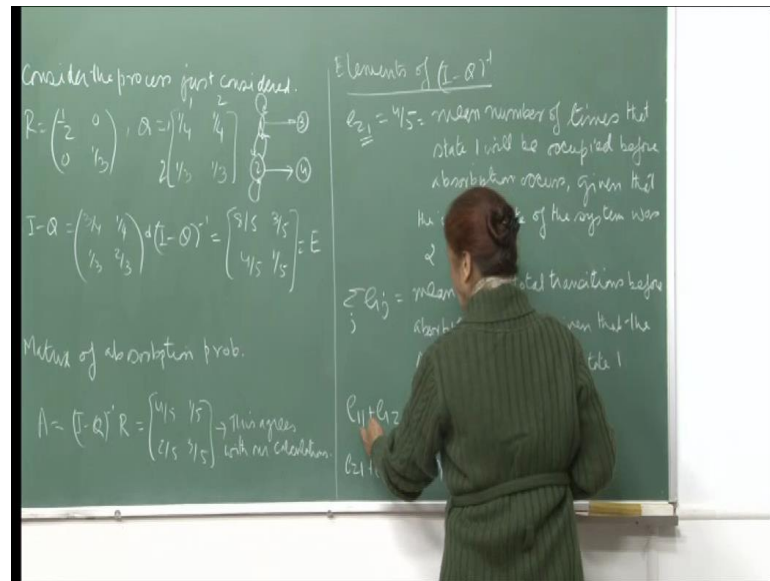 Consider the process just considered.
R = (1/2 0 0 1/3), Q = 1 2 [1/4 1/4 1/3 1/3] 1 2
1 3
2 4
I-Q = (3/4 1/4 1/3 2/3) (I-Q)⁻¹ = [8/5 3/5 4/5 1/5] = E
Matrix of absorbption prob.
A = (I-Q)⁻¹ R = [4/5 1/5 2/5 3/5] → This agrees
with our calculation.
Elements of (I-Q)⁻¹
e₂₁ = 4/5 = mean number of times that
state 1 will be occupied before
absorbtion occurs, given that
the of the system was
2
Σⱼ e₁ⱼ = mean total transitions before
that the
state 1
e₁₁ + e₁₂
e₂₁ +